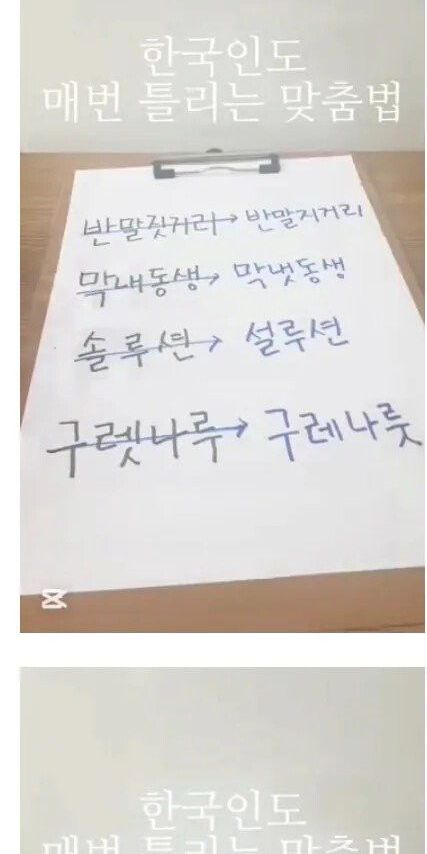 한국인도
매번 틀리는 맞춤법
반말짓거리→ 반말지거리
막내동생→ 막냇동생
솔루션→ 설루션
구렛나루→ 구레나룻
한국인도
매번 틀리는 맞춤법